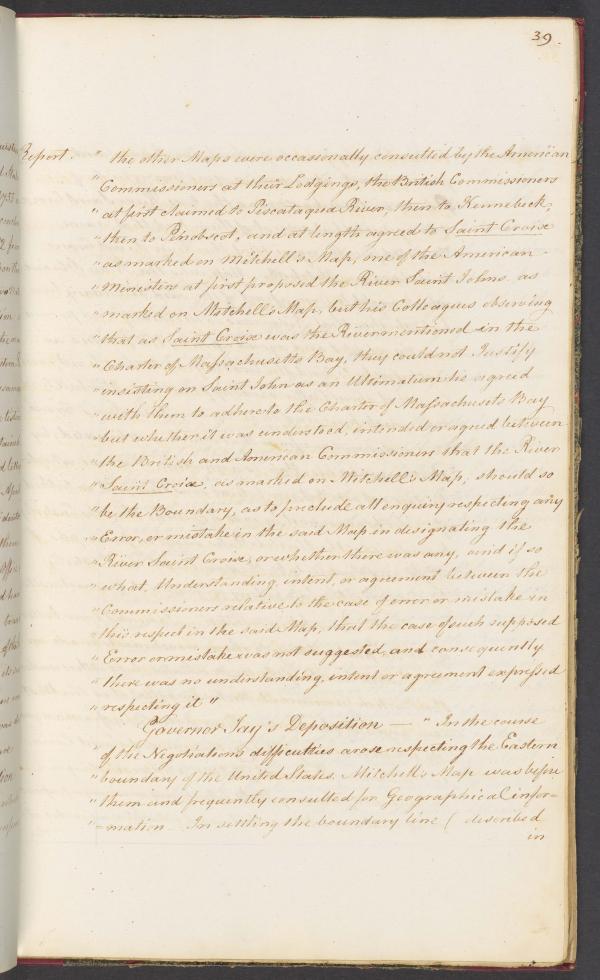 39.
Report. " the other Maps were occasionally consulted by the American
" Commissioners at their Lodgings, the British Commissioners
" at first claimed to Piscataqua River, then to Kennebeck,
" then to Penobscot, and at length agreed to Saint Croix
" as marked on Mitchell's Map, one of the American
" Ministers at first proposed the River Saint Johns as
" marked on Mitchell's Map, but his Colleagues observing
" that as Saint Croix was the River mentioned in the
" Charter of Massachusetts Bay, they could not Justify
" insisting on Saint John as an Ultimatum he agreed
" with them to adhere to the Charter of Massachusets Bay
" but whether it was understood, intended or agreed between
" the British and American Commissioners that the River
" Saint Croix, as marked on Mitchell's Map, should so
" be the Boundary, as to preclude all enquiry respecting any
" Error, or mistake in the said Map in designating the
" River Saint Croix, or whether there was any, and if so
" what, Understanding, intent, or agreement between the
" Commissioners relative to the case of error or mistake in
" this respect in the said Map, that the case of such supposed
" Error or mistake was not suggested, and consequently
" there was no understanding, intent or agreement expressed
" respecting it"
Governor Jay's Deposition — " In the course
" of the Negotiations difficulties arose respecting the Eastern
" boundary of the United States. Mitchell's Map was before
" them and frequently consulted for Geographical infor=
" =mation In settling the boundary line ( described
in